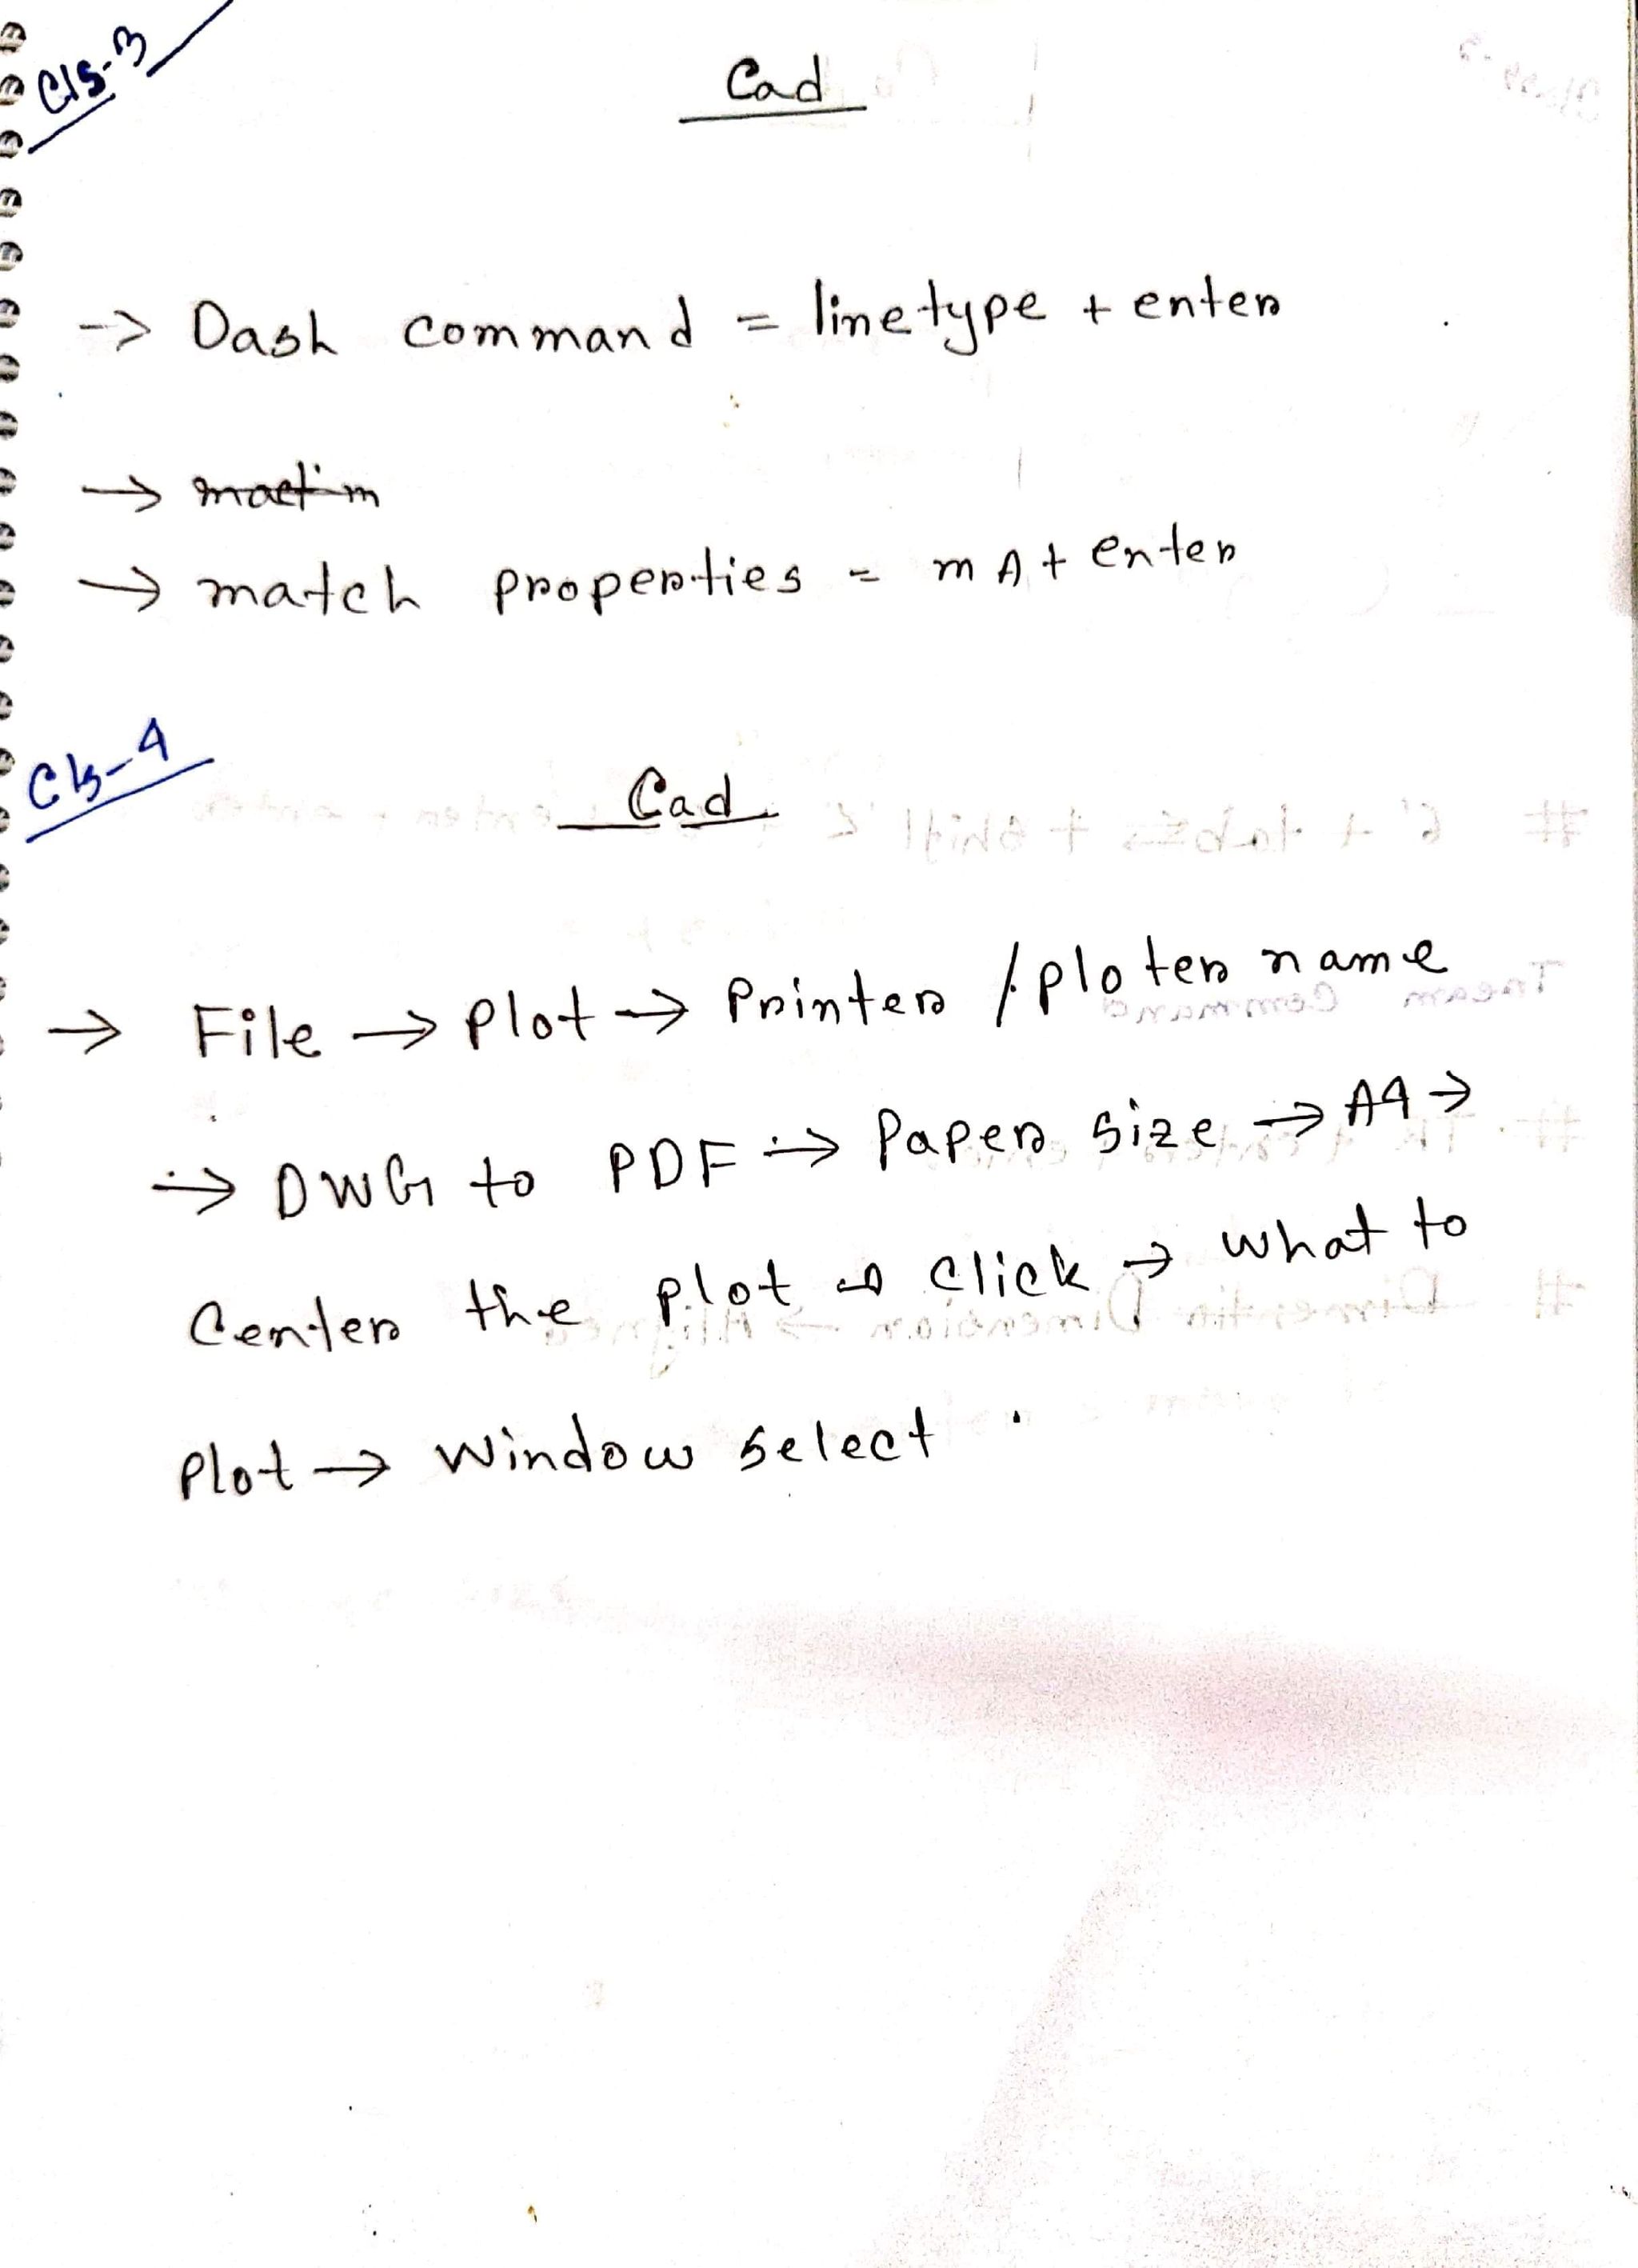 Cls-3
Cad
-> Dash command = linetype + enter
→
→ match properties = mA + enter
Cls-4
Cad
→ File → Plot → Printer / Ploter name
→ DWG to PDF → Paper size → A4 →
Center the plot → click → what to
Plot → Window select